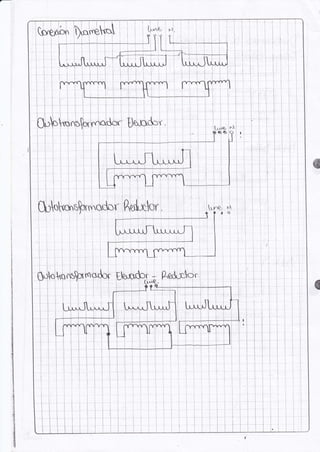 Conexión Diametral
Line N.
Autotransformador Elevador.
Line N.
Autotransformador Reductor.
Line N.
Autotransformador Elevador - Reductor
Line